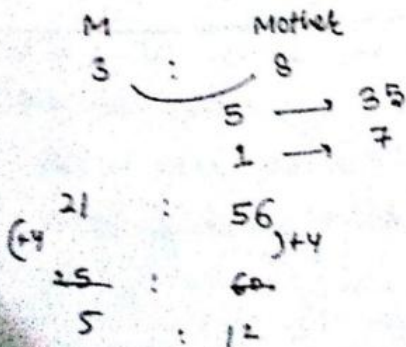 M Mother
3 : 8
5 → 35
1 → 7
21 : 56
(+4 )+4
25 : 60
5 : 12